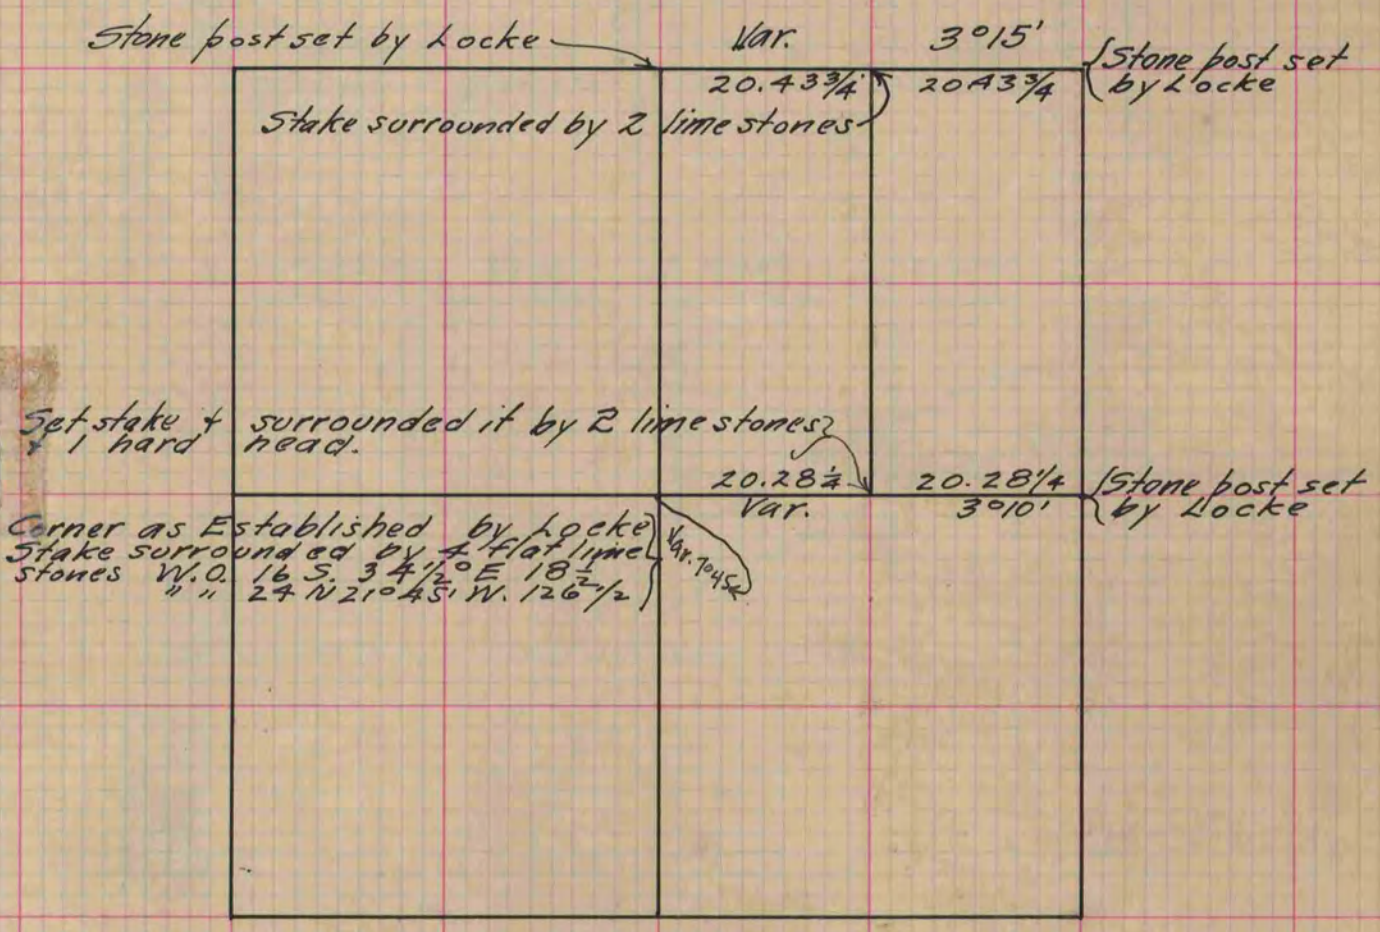 Stone post set by Locke
Var. 3°15'
Stone post set
by Locke
20.43 3/4 2043 3/4
Stake surrounded by 2 lime stones
Set stake & surrounded it by 2 lime stones
& 1 hard head.
20.28 1/4 20.28 1/4
Var. 3°10'
Stone post set
by Locke
Corner as Established by Locke
Stake surrounded by 4 flat lime
stones W.O. 16 S. 34 1/2° E 18 1/2
" " 24 N 21° 45' W. 126 1/2
Var.